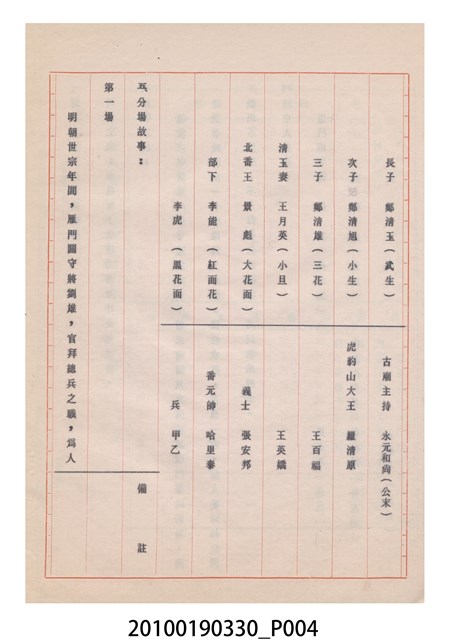 長子　鄭清玉（武生）
古廟主持　永元和尚（公末）
次子　鄭清旭（小生）
虎豹山大王　羅清原
三子　鄭清雄（三花）
王百福
清玉妻　王月英（小旦）
王英嬌
北番王　景彪（大花面）
義士　張安邦
部下　李能（紅面花）
番元帥　哈里泰
李虎（黑花面）
兵　甲乙
五、分場故事：
備註
第一場
明朝世宗年間，雁門關守將劉雄，官拜總兵之職，為人
20100190330_P004